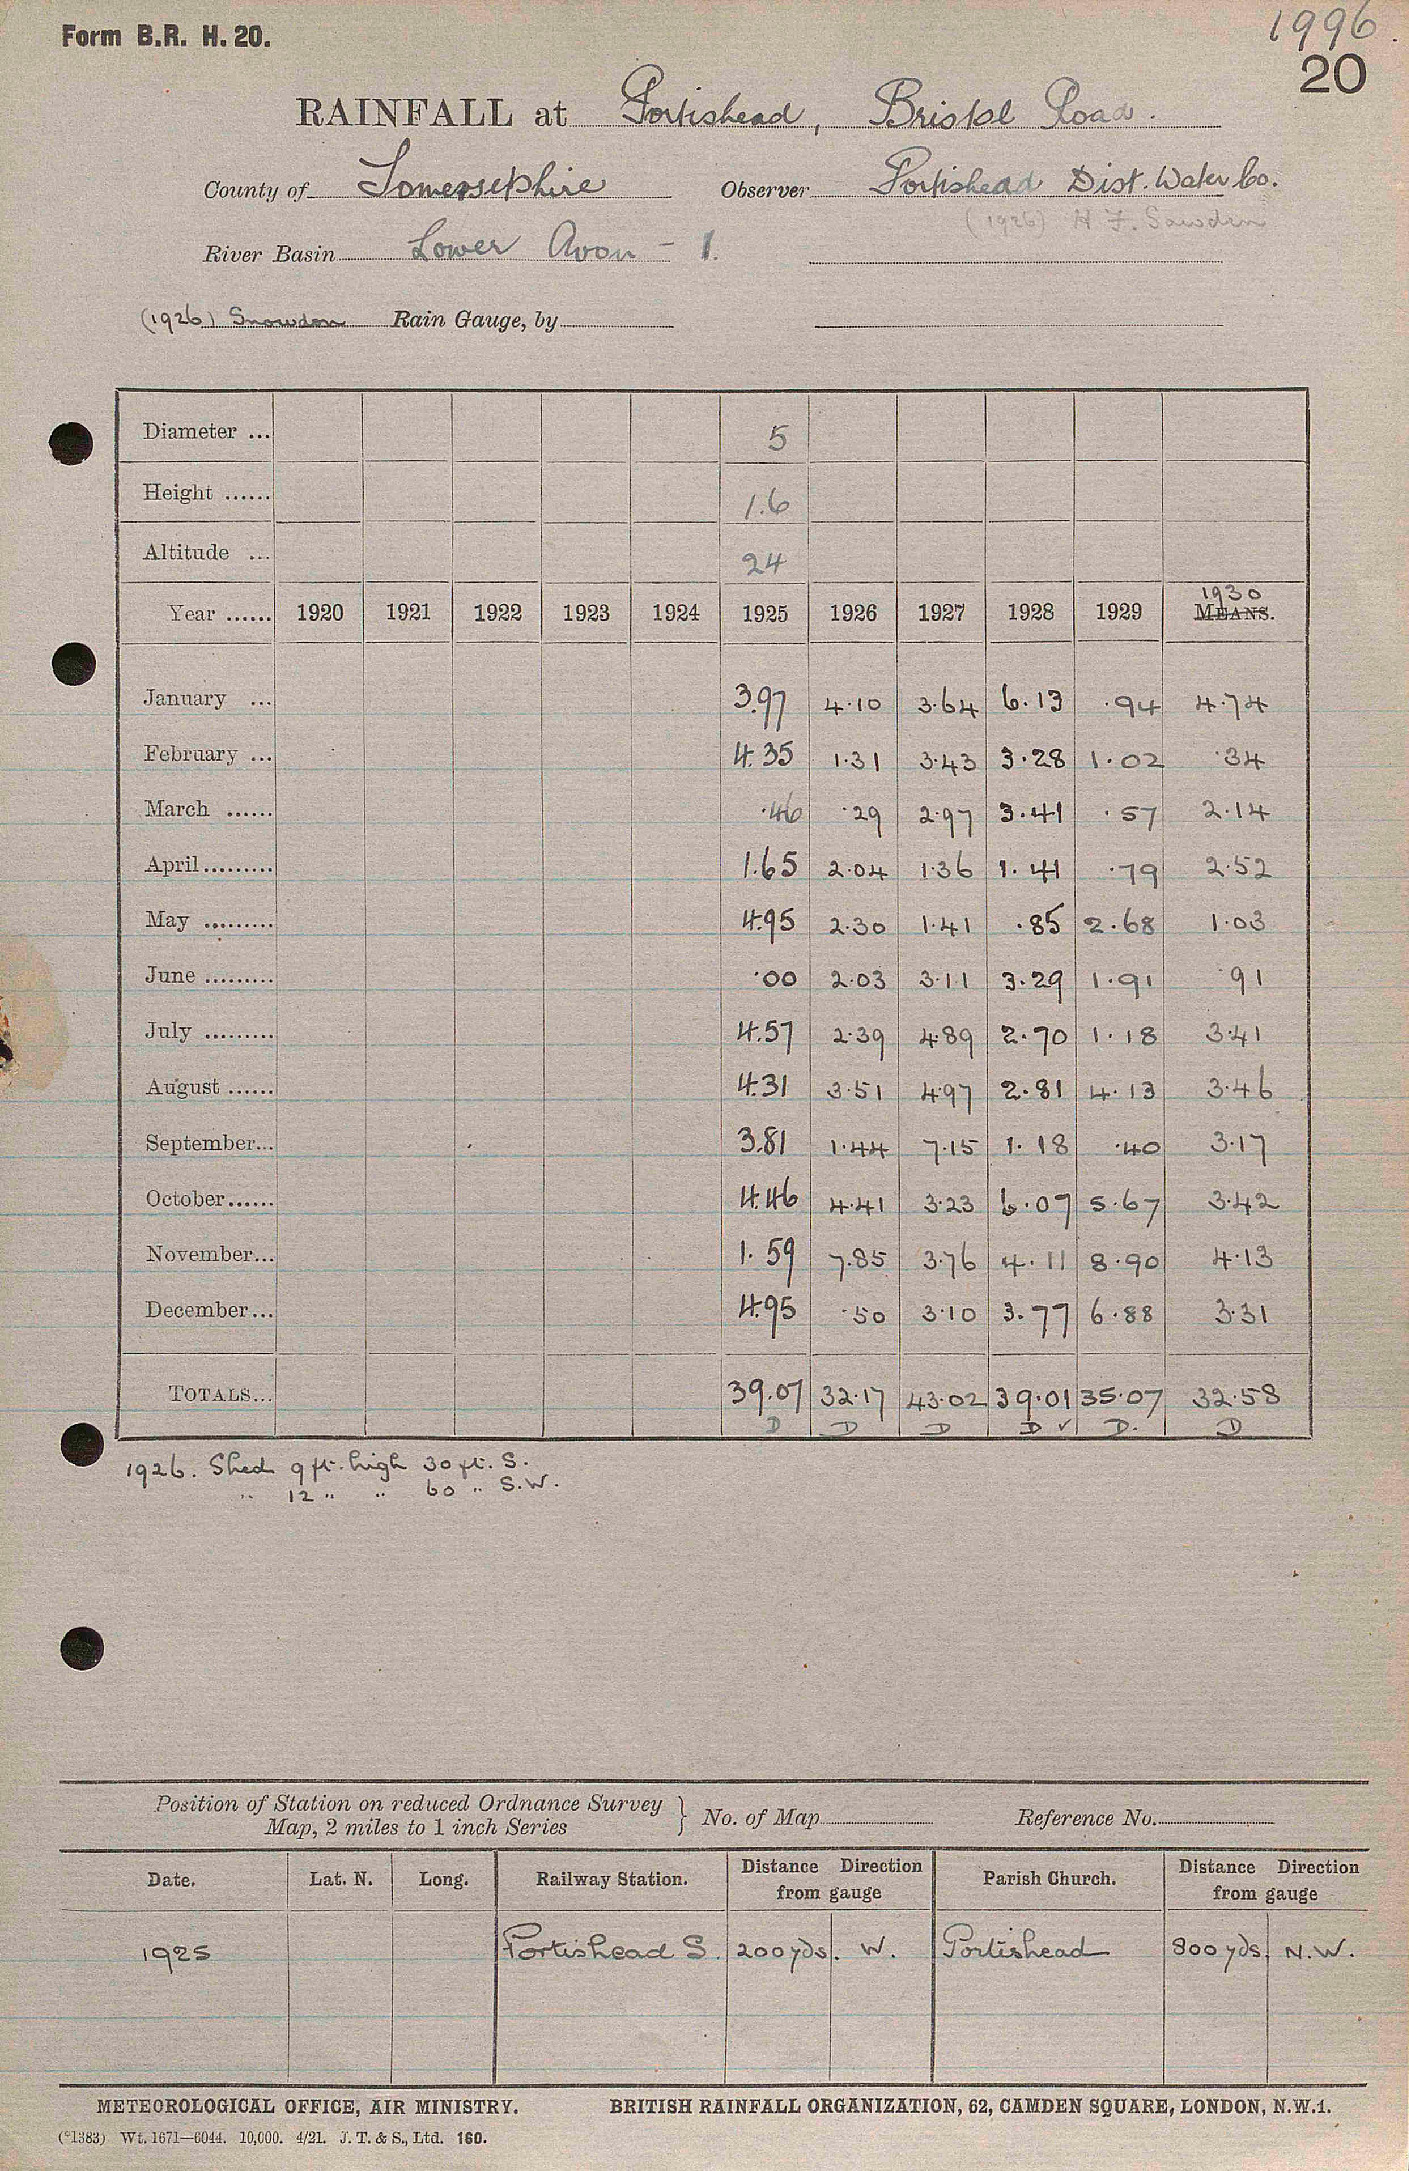 Form B.R. H. 20.
1996.
20
RAINFALL at Portishead, Bristol Road.
County of Somersetshire Observer Portishead Dist. Water Co.
(1926) H F. Sawden
River Basin Lower Avon - 1.
(1926) Snowdon Rain Gauge, by
Diameter ... 5
Height ...... 1.6
Altitude ... 24
1930
Year ...... 1920 1921 1922 1923 1924 1925 1926 1927 1928 1929 MEANS.
January ... 3.97 4.10 3.64 6.13 .94 4.74
February ... 4.35 1.31 3.43 3.28 1.02 .34
March ...... .46 .29 2.97 3.41 .57 2.14
April ......... 1.65 2.04 1.36 1.41 .79 2.52
May ......... 4.95 2.30 1.41 .85 2.68 1.03
June ......... .00 2.03 3.11 3.29 1.91 .91
July ......... 4.57 2.39 4.89 2.70 1.18 3.41
August ...... 4.31 3.51 4.97 2.81 4.13 3.46
September... 3.81 1.44 7.15 1.18 .40 3.17
October...... 4.46 4.41 3.23 6.07 5.67 3.42
November... 1.59 7.85 3.76 4.11 8.90 4.13
December... 4.95 .50 3.10 3.77 6.88 3.31
TOTALS... 39.07 32.17 43.02 39.01 35.07 32.58
D D D D ✓ D. D
1926. Shed 9 ft. high 30 ft. S.
" 12 " " 60 " S.W.
Position of Station on reduced Ordnance Survey
Map, 2 miles to 1 inch Series } No. of Map Reference No.
Date. Lat. N. Long. Railway Station. Distance Direction from gauge Parish Church. Distance Direction from gauge
1925 Portishead S. 200 yds. W. Portishead 800 yds. N.W.
METEOROLOGICAL OFFICE, AIR MINISTRY. BRITISH RAINFALL ORGANIZATION, 62, CAMDEN SQUARE, LONDON, N.W.1.
(*1383) Wt. 1671—6044. 10,000. 4/21. J. T. & S., Ltd. 160.